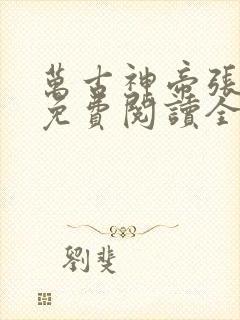 萬古神帝張
免費閱讀全
劉斐